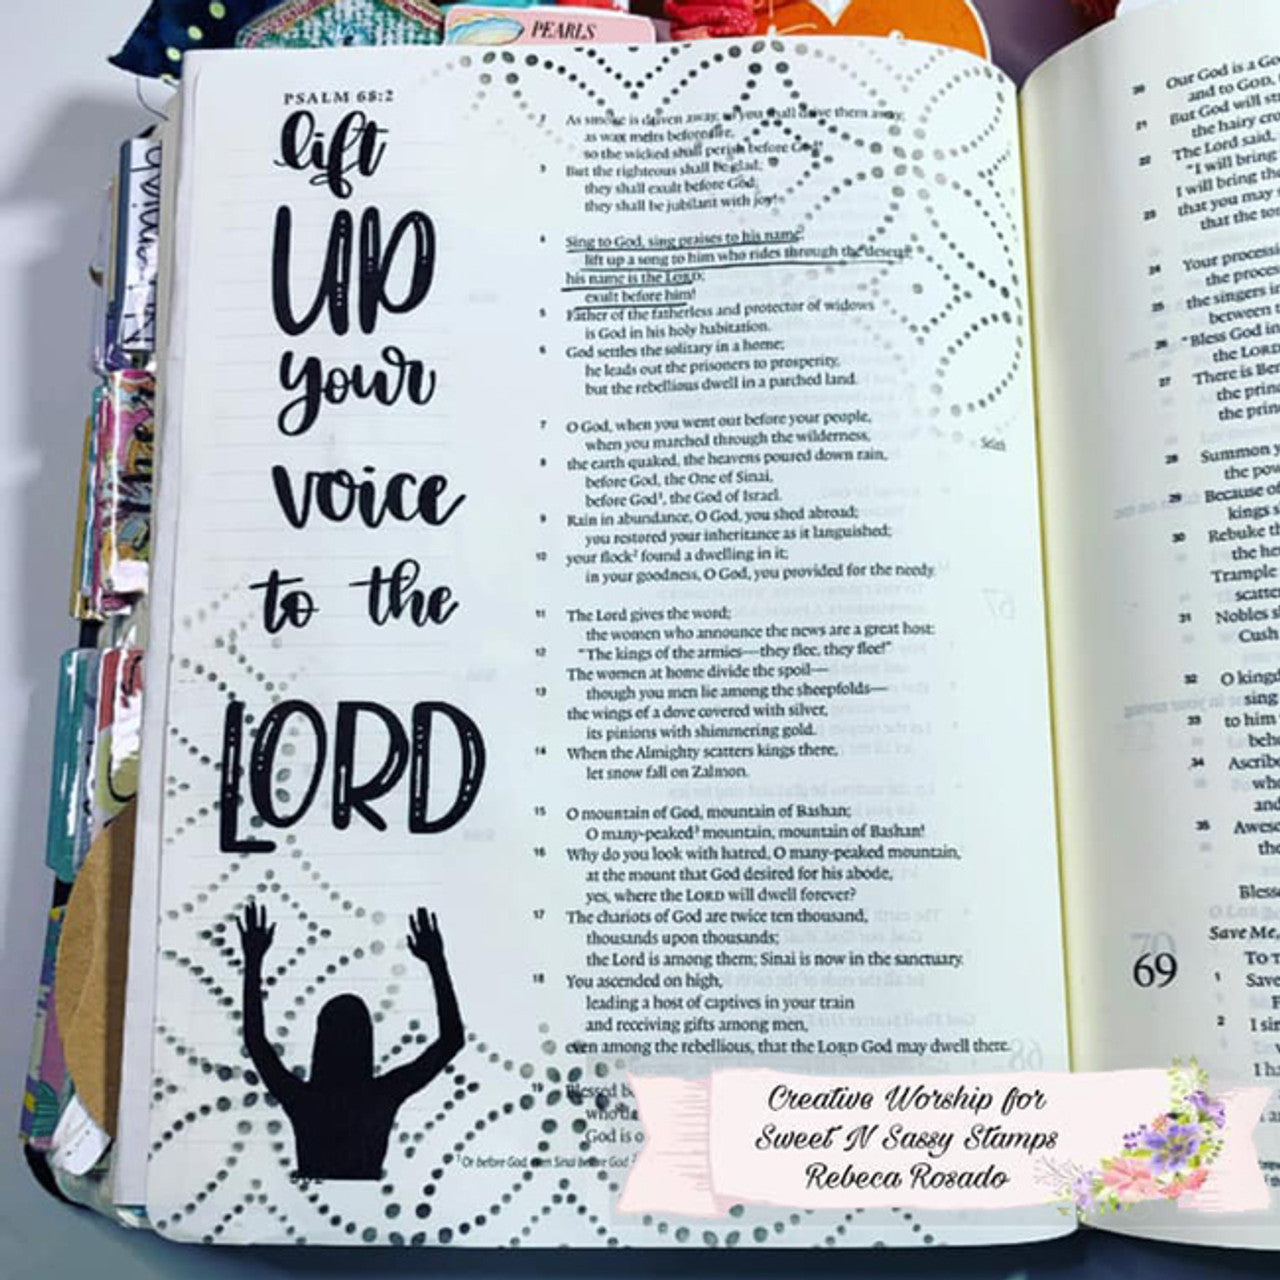 PEARLS
PSALM 68:2
lift
UP
your
voice
to the
LORD
2 As smoke is driven away, so you shall drive them away;
as wax melts before fire,
so the wicked shall perish before God!
3 But the righteous shall be glad;
they shall exult before God;
they shall be jubilant with joy!
4 Sing to God, sing praises to his name;
lift up a song to him who rides through the deserts;
his name is the LORD;
exult before him!
5 Father of the fatherless and protector of widows
is God in his holy habitation.
6 God settles the solitary in a home;
he leads out the prisoners to prosperity,
but the rebellious dwell in a parched land.
7 O God, when you went out before your people,
when you marched through the wilderness,
Selah
8 the earth quaked, the heavens poured down rain,
before God, the One of Sinai,
before God¹, the God of Israel.
9 Rain in abundance, O God, you shed abroad;
you restored your inheritance as it languished;
10 your flock² found a dwelling in it;
in your goodness, O God, you provided for the needy.
11 The Lord gives the word;
the women who announce the news are a great host:
12 “The kings of the armies—they flee, they flee!”
The women at home divide the spoil—
13 though you men lie among the sheepfolds—
the wings of a dove covered with silver,
its pinions with shimmering gold.
14 When the Almighty scatters kings there,
let snow fall on Zalmon.
15 O mountain of God, mountain of Bashan;
O many-peaked³ mountain, mountain of Bashan!
16 Why do you look with hatred, O many-peaked mountain,
at the mount that God desired for his abode,
yes, where the LORD will dwell forever?
17 The chariots of God are twice ten thousand,
thousands upon thousands;
the Lord is among them; Sinai is now in the sanctuary.
18 You ascended on high,
leading a host of captives in your train
and receiving gifts among men,
even among the rebellious, that the LORD God may dwell there.
19 Blessed b
who da
God is o
¹ Or before God, even Sinai before God
20 Our God is a Go
and to GOD,
21 But God will st
the hairy cro
22 The Lord said,
“I will bring
I will bring the
23 that you may
that the to
24 Your processi
the proces
25 the singers in
between
26 “Bless God in
the LORD
27 There is Ben
the prin
the prin
28 Summon y
the pow
29 Because of
kings
30 Rebuke th
the he
Trample
scatte
31 Nobles s
Cush
32 O kingd
sing
33 to him
beho
34 Ascribe
who
and
35 Awes
the
Bless
69
Save Me,
TO T
1 Save
F
2 I sin
I ha
Creative Worship for
Sweet N Sassy Stamps
Rebeca Rosado